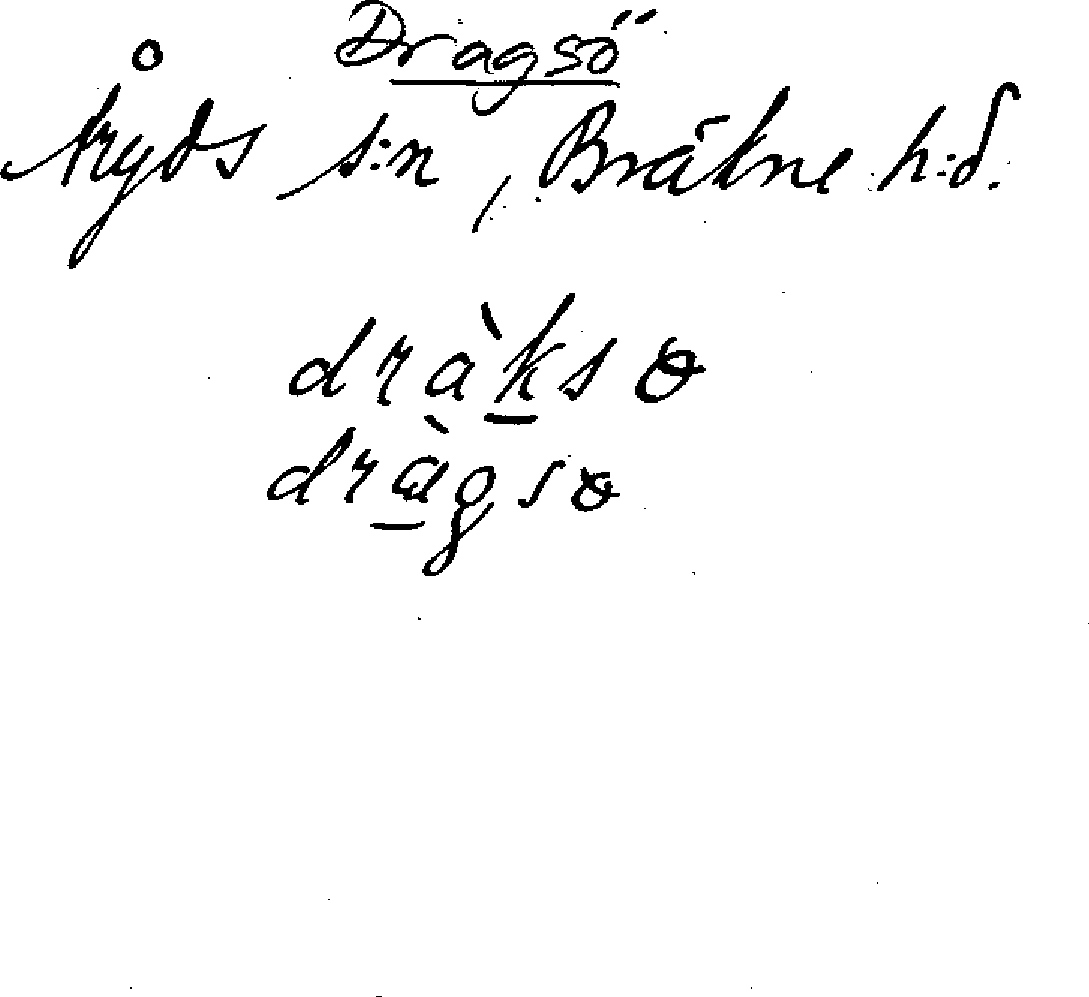 Dragsö
Åryds s:n, Bräkne h:d.
dràksɵ
dràgsɵ